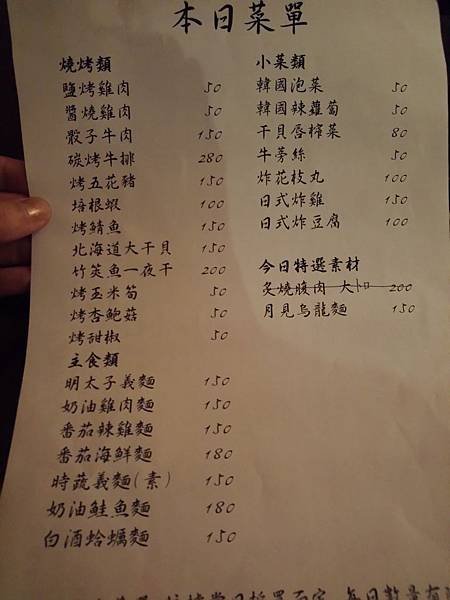 本日菜單
燒烤類
鹽烤雞肉 50
醬燒雞肉 50
骰子牛肉 150
碳烤牛排 280
烤五花豬 150
培根蝦 100
烤鯖魚 150
北海道大干貝 150
竹筴魚一夜干 200
烤玉米筍 50
烤杏鮑菇 50
烤甜椒 50
主食類
明太子義麵 150
奶油雞肉麵 150
番茄辣雞麵 150
番茄海鮮麵 180
時蔬義麵(素) 150
奶油鮭魚麵 180
白酒蛤蠣麵 150
小菜類
韓國泡菜 50
韓國辣蘿蔔 50
干貝唇榨菜 80
牛蒡絲 50
炸花枝丸 100
日式炸雞 150
日式炸豆腐 100
今日特選素材
炙燒腹肉 大トロ 200
月見烏龍麵 150